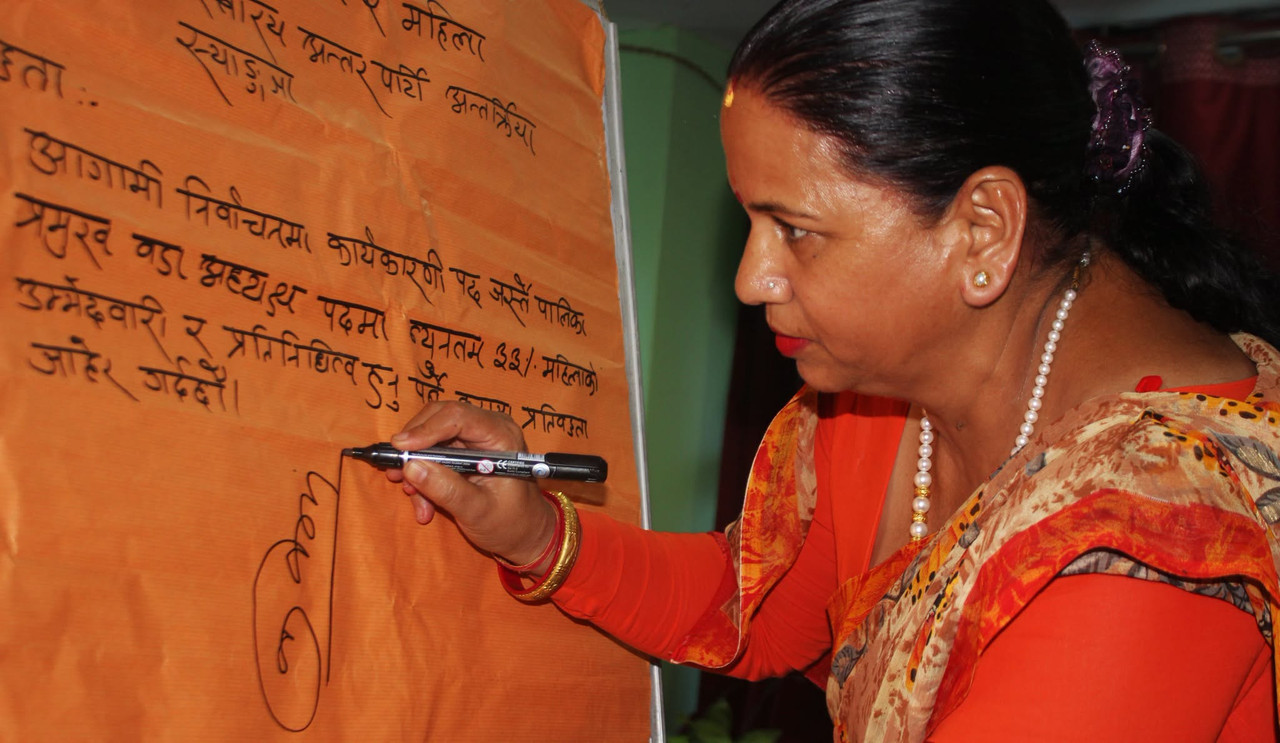 महिला
अन्तर पार्टी अन्तर्क्रिया
स्याङ्जा
आगामी निर्वाचनमा कार्यकारणी पद जस्तै पालिका
प्रमुख वडा अध्यक्ष पदमा न्युनतम ३३% महिलाको
उम्मेदवारी र प्रतिनिधित्व हुनु पर्ने प्रतिवद्धता
जाहेर गर्दछौं।